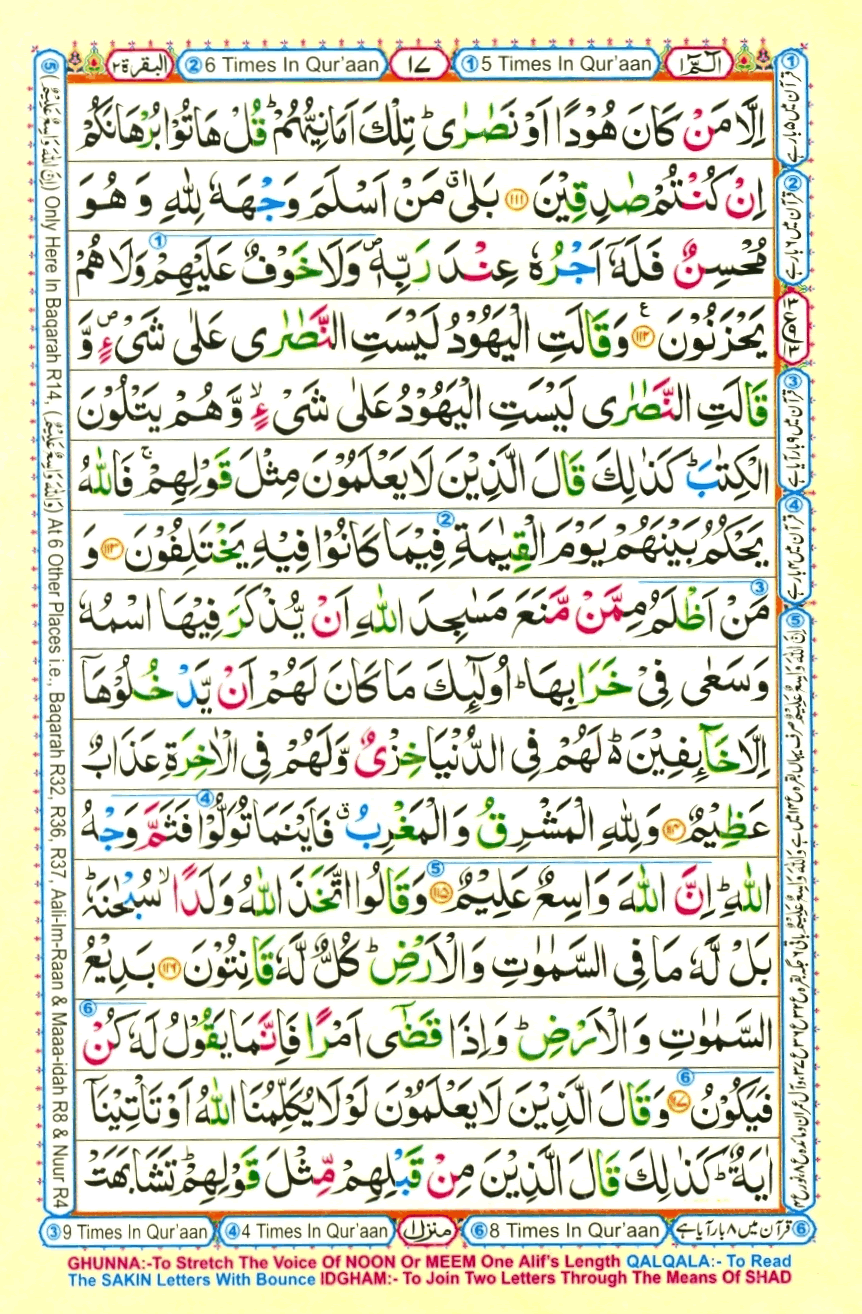 الٓمّٓ ١ ① 5 Times In Qur'aan ١٧ ② 6 Times In Qur'aan البقرة ٢
اِلَّا مَنْ كَانَ هُوْدًا اَوْ نَصٰرٰى ؕ تِلْكَ اَمَانِيُّهُمْ ؕ قُلْ هَاتُوْا بُرْهَانَكُمْ
اِنْ كُنْتُمْ صٰدِقِيْنَ ﴿۱۱۱﴾ بَلٰى ۗ مَنْ اَسْلَمَ وَجْهَهٗ لِلّٰهِ وَ هُوَ
مُحْسِنٌ فَلَهٗۤ اَجْرُهٗ عِنْدَ رَبِّهٖ ۪ وَلَا خَوْفٌ عَلَيْهِمْ وَلَا هُمْ
يَحْزَنُوْنَ ﴿۱۱۲﴾ وَقَالَتِ الْيَهُوْدُ لَيْسَتِ النَّصٰرٰى عَلٰى شَىْءٍ ۪ وَّ
قَالَتِ النَّصٰرٰى لَيْسَتِ الْيَهُوْدُ عَلٰى شَىْءٍ ۙ وَّ هُمْ يَتْلُوْنَ
الْكِتٰبَ ؕ كَذٰلِكَ قَالَ الَّذِيْنَ لَا يَعْلَمُوْنَ مِثْلَ قَوْلِهِمْ ۚ فَاللّٰهُ
يَحْكُمُ بَيْنَهُمْ يَوْمَ الْقِيٰمَةِ فِيْمَا كَانُوْا فِيْهِ يَخْتَلِفُوْنَ ﴿۱۱۳﴾ وَ
مَنْ اَظْلَمُ مِمَّنْ مَّنَعَ مَسٰجِدَ اللّٰهِ اَنْ يُّذْكَرَ فِيْهَا اسْمُهٗ
وَسَعٰى فِىْ خَرَابِهَا ؕ اُولٰٓئِكَ مَا كَانَ لَهُمْ اَنْ يَّدْخُلُوْهَاۤ
اِلَّا خَآئِفِيْنَ ؕ لَهُمْ فِى الدُّنْيَا خِزْىٌ وَّلَهُمْ فِى الْاٰخِرَةِ عَذَابٌ
عَظِيْمٌ ﴿۱۱۴﴾ وَلِلّٰهِ الْمَشْرِقُ وَالْمَغْرِبُ ۗ فَاَيْنَمَا تُوَلُّوْا فَثَمَّ وَجْهُ
اللّٰهِ ؕ اِنَّ اللّٰهَ وَاسِعٌ عَلِيْمٌ ﴿۱۱۵﴾ وَقَالُوا اتَّخَذَ اللّٰهُ وَلَدًا ۙ سُبْحٰنَهٗ ؕ
بَلْ لَّهٗ مَا فِى السَّمٰوٰتِ وَالْاَرْضِ ؕ كُلٌّ لَّهٗ قَانِتُوْنَ ﴿۱۱۶﴾ بَدِيْعُ
السَّمٰوٰتِ وَالْاَرْضِ ؕ وَاِذَا قَضٰٓى اَمْرًا فَاِنَّمَا يَقُوْلُ لَهٗ كُنْ
فَيَكُوْنُ ﴿۱۱۷﴾ وَقَالَ الَّذِيْنَ لَا يَعْلَمُوْنَ لَوْلَا يُكَلِّمُنَا اللّٰهُ اَوْ تَاْتِيْنَاۤ
اٰيَةٌ ؕ كَذٰلِكَ قَالَ الَّذِيْنَ مِنْ قَبْلِهِمْ مِّثْلَ قَوْلِهِمْ ؕ تَشَابَهَتْ
① قرآن میں ۵ بار ہے
② قرآن میں ۶ بار ہے
③ قرآن میں ۹ بار آیا ہے
④ قرآن میں ۴ بار ہے
⑤ (اِنَّ اللّٰهَ وَاسِعٌ عَلِيْمٌ) Only Here In Baqarah R14, (وَاللّٰهُ وَاسِعٌ عَلِيْمٌ) At 6 Other Places i.e., Baqarah R32, R36, R37, Aali-Im-Raan & Maaa-idah R8 & Nuur R4
③ 9 Times In Qur'aan ④ 4 Times In Qur'aan منزل ١ ⑥ 8 Times In Qur'aan ⑥ قرآن میں ۸ بار آیا ہے
GHUNNA:-To Stretch The Voice Of NOON Or MEEM One Alif's Length QALQALA:- To Read
The SAKIN Letters With Bounce IDGHAM:- To Join Two Letters Through The Means Of SHAD